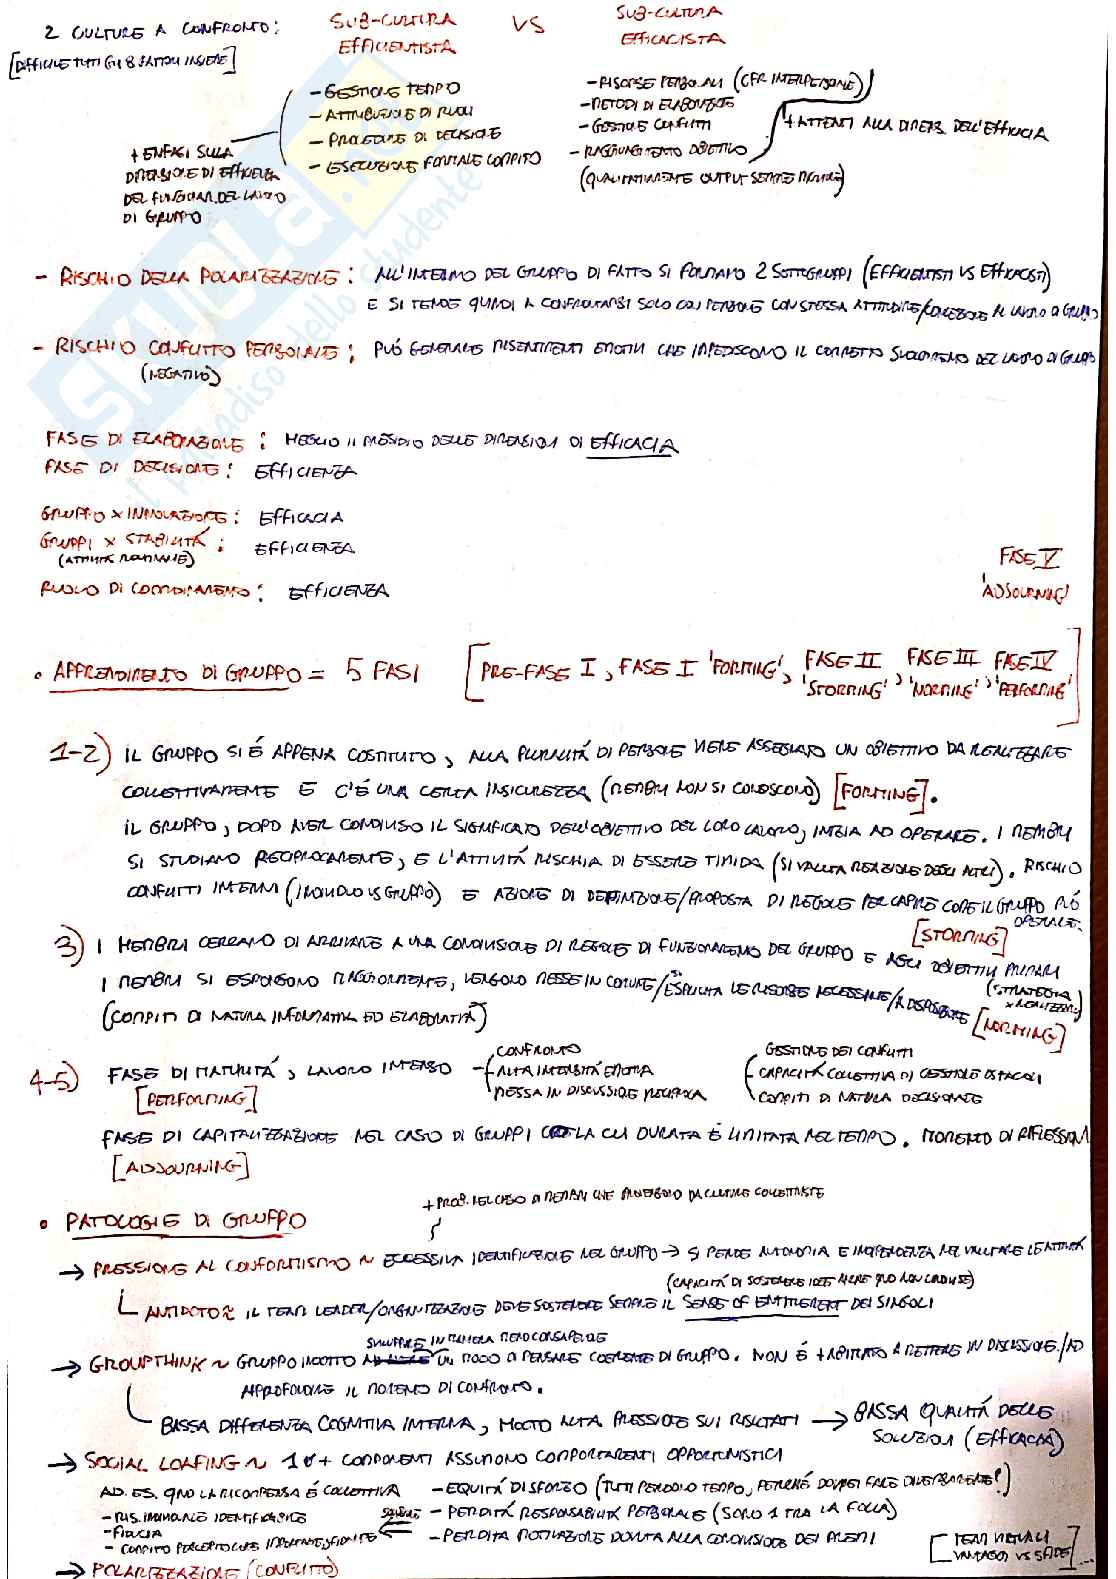 2 CULTURE A CONFRONTO: SUB-CULTURA EFFICIENTISTA VS SUB-CULTURA EFFICACISTA
[DIFFICILE TUTTI GLI 8 FATTORI INSIEME]
- GESTIONE TEMPO
- ATTRIBUZIONE DI RUOLI
- PROCEDURE DI DECISIONE
- ESECUZIONE FORMALE COMPITO
+ ENFASI SULLA
DIMENSIONE DI EFFICIENZA
DEL FUNZIONAM. DEL LAVORO
DI GRUPPO
- RISORSE PERSONALI (CFR INTERPERSONALE)
- METODI DI ELABORAZIONE
- GESTIONE CONFLITTI
- RAGGIUNGIMENTO OBIETTIVO
(QUALITATIVAMENTE OUTPUT SEMPRE MIGLIORE)
+ ATTENTI ALLA DIMENS. DELL'EFFICACIA
- RISCHIO DELLA POLARIZZAZIONE: ALL'INTERNO DEL GRUPPO DI FATTO SI FORMANO 2 SOTTOGRUPPI (EFFICIENTISTI VS EFFICACISTI)
E SI TENDE QUINDI A CONFRONTARSI SOLO CON PERSONE CON STESSA ATTITUDINE/CONCEZIONE AL LAVORO DI GRUPPO
- RISCHIO CONFLITTO PERSONALE: PUÓ GENERARE RISENTIMENTI EMOTIVI CHE IMPEDISCONO IL CORRETTO SVOLGIMENTO DEL LAVORO DI GRUPPO
(NEGATIVO)
FASE DI ELABORAZIONE: MEGLIO IL PRESIDIO DELLE DIMENSIONI DI EFFICACIA
FASE DI DECISIONE: EFFICIENZA
GRUPPO X INNOVAZIONE: EFFICACIA
GRUPPI X STABILITÁ: EFFICIENZA
(ATTIVITÁ ROUTINARIE)
RUOLO DI COORDINAMENTO: EFFICIENZA
FASE V
'ADJOURNING'
• APPRENDIMENTO DI GRUPPO = 5 FASI [PRE-FASE I, FASE I 'FORMING', FASE II 'STORMING', FASE III 'NORMING', FASE IV 'PERFORMING']
1-2) IL GRUPPO SI É APPENA COSTITUITO, ALLA PLURALITÁ DI PERSONE VIENE ASSEGNATO UN OBIETTIVO DA REALIZZARE
COLLETTIVAMENTE E C'É UNA CERTA INSICUREZZA (MEMBRI NON SI CONOSCONO) [FORMING].
IL GRUPPO, DOPO AVER CONDIVISO IL SIGNIFICATO DELL'OBIETTIVO DEL LORO LAVORO, INIZIA AD OPERARE. I MEMBRI
SI STUDIANO RECIPROCAMENTE, E L'ATTIVITÁ RISCHIA DI ESSERE TIMIDA (SI VALUTA REAZIONE DEGLI ALTRI). RISCHIO
CONFLITTI INTERNI (INDIVIDUO VS GRUPPO) E AZIONE DI DEFINIZIONE/PROPOSTA DI REGOLE PER CAPIRE COME IL GRUPPO PUÓ
OPERARE.
[STORMING]
3) I MEMBRI CERCANO DI ARRIVARE A UNA CONDIVISIONE DI REGOLE DI FUNZIONAMENTO DEL GRUPPO E AGLI OBIETTIVI PRIMARI
(STRATEGIA X REALIZZARLI)
I MEMBRI SI ESPONGONO MAGGIORMENTE, VENGONO MESSE IN COMUNE/SI ESPLICITA LE RISORSE NECESSARIE/A DISPOSIZIONE [NORMING]
(COMPITI DI NATURA INFORMATIVA ED ELABORATIVA)
4-5) FASE DI MATURITÁ, LAVORO INTENSO
[PERFORMING]
- CONFRONTO
- ALTA INTENSITÁ EMOTIVA
- MESSA IN DISCUSSIONE RECIPROCA
GESTIONE DEI CONFLITTI
- CAPACITÁ COLLETTIVA DI GESTIONE OSTACOLI
- COMPITI DI NATURA DECISIONALE
FASE DI CAPITALIZZAZIONE NEL CASO DI GRUPPI LA CUI DURATA É LIMITATA NEL TEMPO. MOMENTO DI RIFLESSIONE
[ADJOURNING]
• PATOLOGIE DI GRUPPO
+ PROB. NEL CASO DI MEMBRI CHE PROVENGONO DA CULTURE COLLETTIVISTE
→ PRESSIONE AL CONFORMISMO ~ ECCESSIVA IDENTIFICAZIONE NEL GRUPPO → SI PERDE AUTONOMIA E INDIPENDENZA NEL VALUTARE LE ATTIVITÁ
(CAPACITÁ DI SOSTENERE IDEE ANCHE QND NON CONDIVISE)
ANTIDOTO: IL TEAM LEADER/ORGANIZZAZIONE DEVE SOSTENERE SEMPRE IL SENSE OF ENTITLEMENT DEI SINGOLI
SVILUPPARE IN MANIERA MENO CONSAPEVOLE
→ GROUPTHINK ~ GRUPPO INDOTTO UN MODO DI PENSARE COERENTE DI GRUPPO. NON É + ABITUATO A METTERE IN DISCUSSIONE/AD
APPROFONDIRE IL MOMENTO DI CONFRONTO.
BASSA DIFFERENZA COGNITIVA INTERNA, MOLTO ALTA PRESSIONE SUI RISULTATI → BASSA QUALITÁ DELLE
SOLUZIONI (EFFICACIA)
→ SOCIAL LOAFING ~ 1 O + COMPONENTI ASSUMONO COMPORTAMENTI OPPORTUNISTICI
AD. ES. QND LA RICOMPENSA É COLLETTIVA
- RIS. INDIVIDUALE IDENTIFICABILE
- FIDUCIA
- COMPITO PERCEPITO COME IMPORTANTE, SFIDANTE
SOLUZIONE
- EQUITÁ DI SFORZO (TUTTI PERDONO TEMPO, PERCHÉ DOVREI FARE DIVERSAMENTE?)
- PERDITÁ RESPONSABILITÁ PERSONALE (SONO 1 TRA LA FOLLA)
- PERDITA MOTIVAZIONE DOVUTA ALLA CONDIVISIONE DEI PREMI
→ POLARIZZAZIONE (CONFLITTO)
[TEAM VIRTUALI
VANTAGGI VS SFIDE]...
SKUOLA.net
il paradiso dello studente